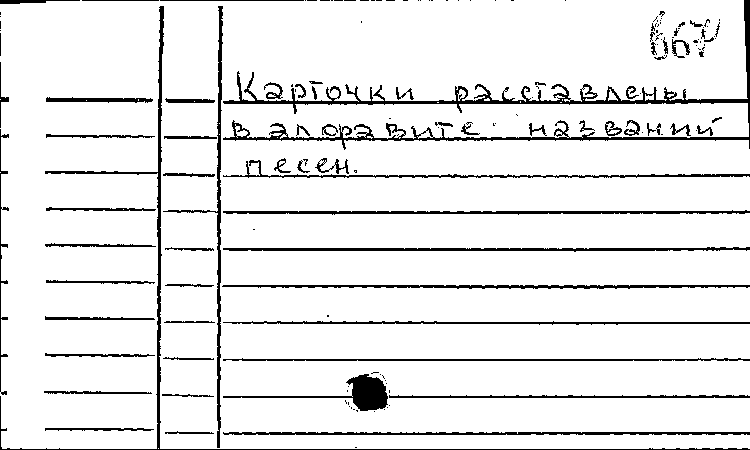 Карточки расставлены
в алфавите названий
песен.